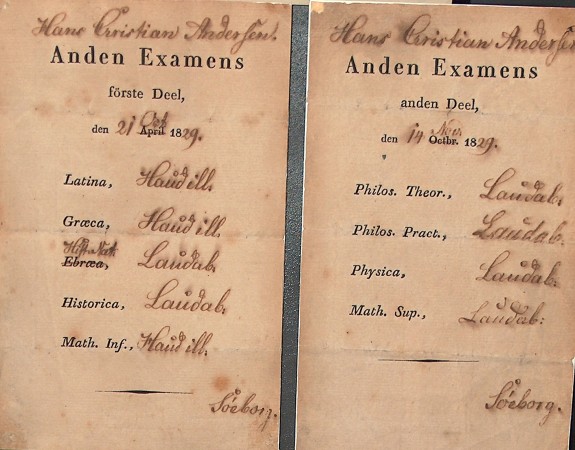 Hans Christian Andersen.
Anden Examens
förste Deel,
den 21 Oct. April 1829.
Latina, Haud ill.
Græca, Haud ill.
Hist. Nat. Ebræa, Laudab.
Historica, Laudab.
Math. Inf., Haud ill.
Söeborg.
Hans Christian Andersen
Anden Examens
anden Deel,
den 14 Novr. Octbr. 1829.
Philos. Theor., Laudab.
Philos. Pract., Laudab.
Physica, Laudab.
Math. Sup., Laudab:
Söeborg.